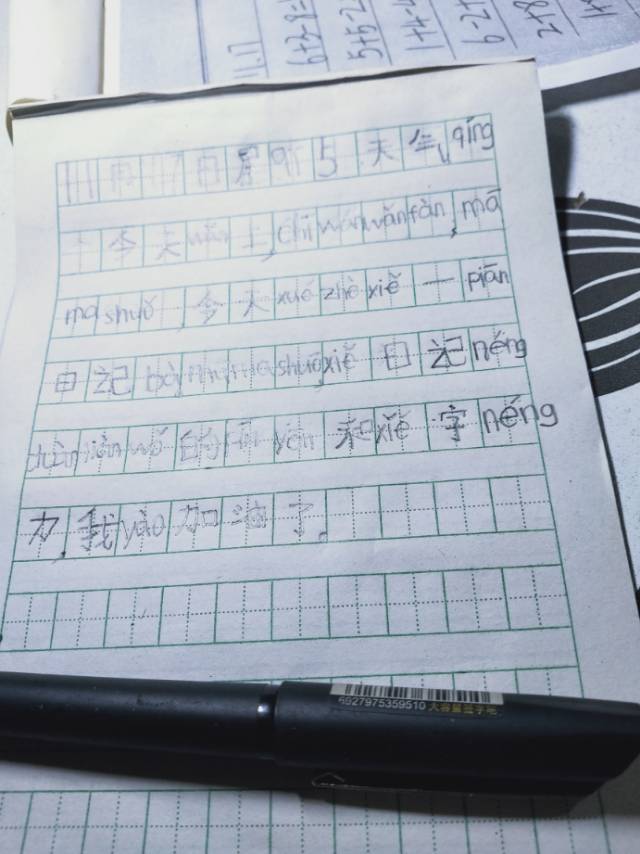 11.17
6+3-8=
5+5-2
1+4-
6-2+
2+8
11月17日星qi5天气qíng
今天wǎn上,chī wán wǎn fàn,mā
ma shuō,今天xué zhe xiě一piān
日记bamā ma shuō,xiě日记néng
duàn liàn wǒ的yán和xiě字néng
力,我yào加油了。
6927975359510 大容量签字笔